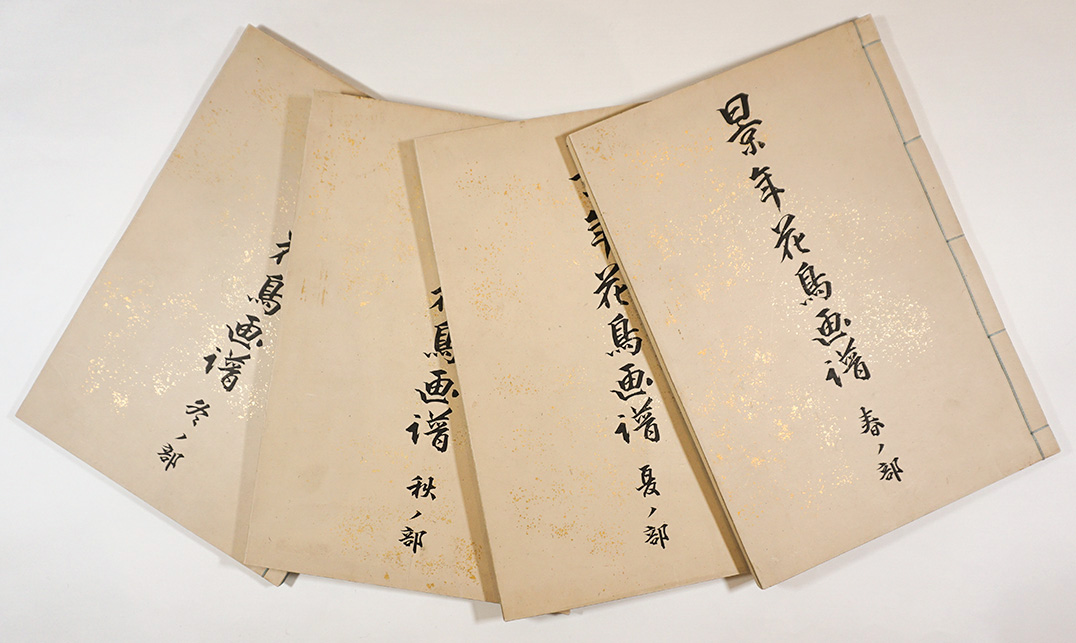 景年花鳥画譜
春ノ部
年花鳥画譜
夏ノ部
鳥画譜
秋ノ部
鳥画譜
冬ノ部